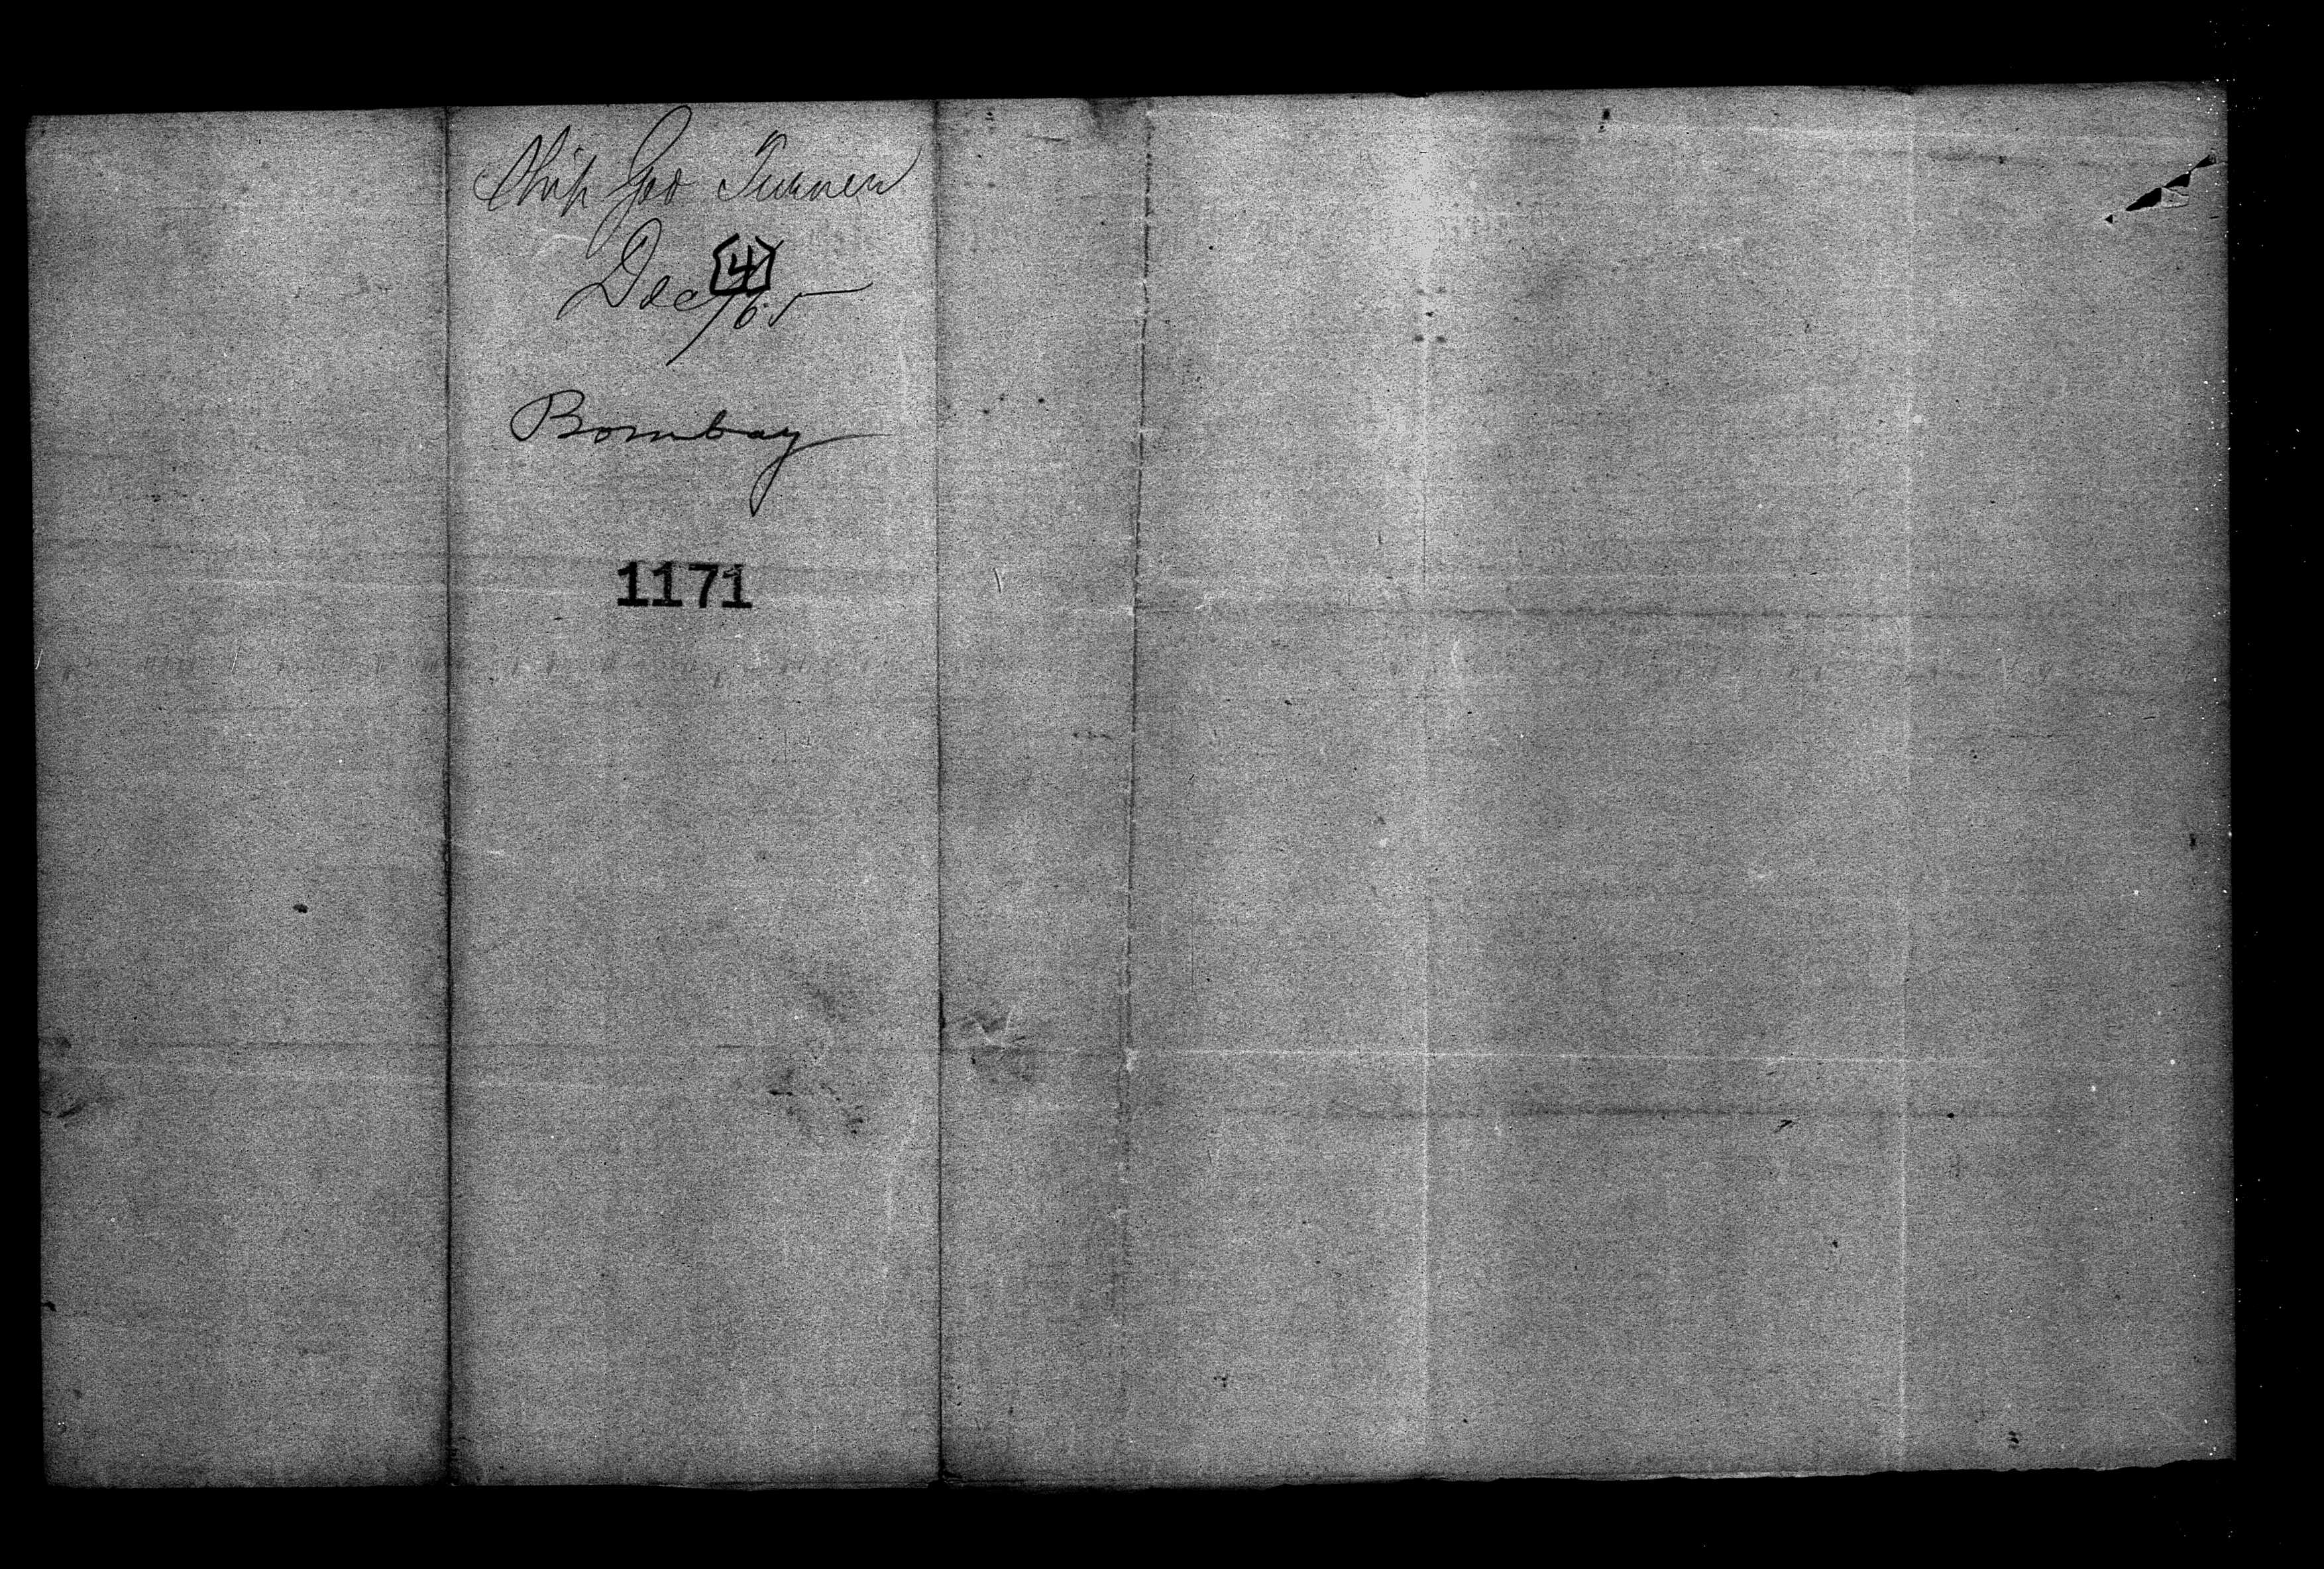 Ship Geo Turner
[4]
Dec/65
Bombay
1171